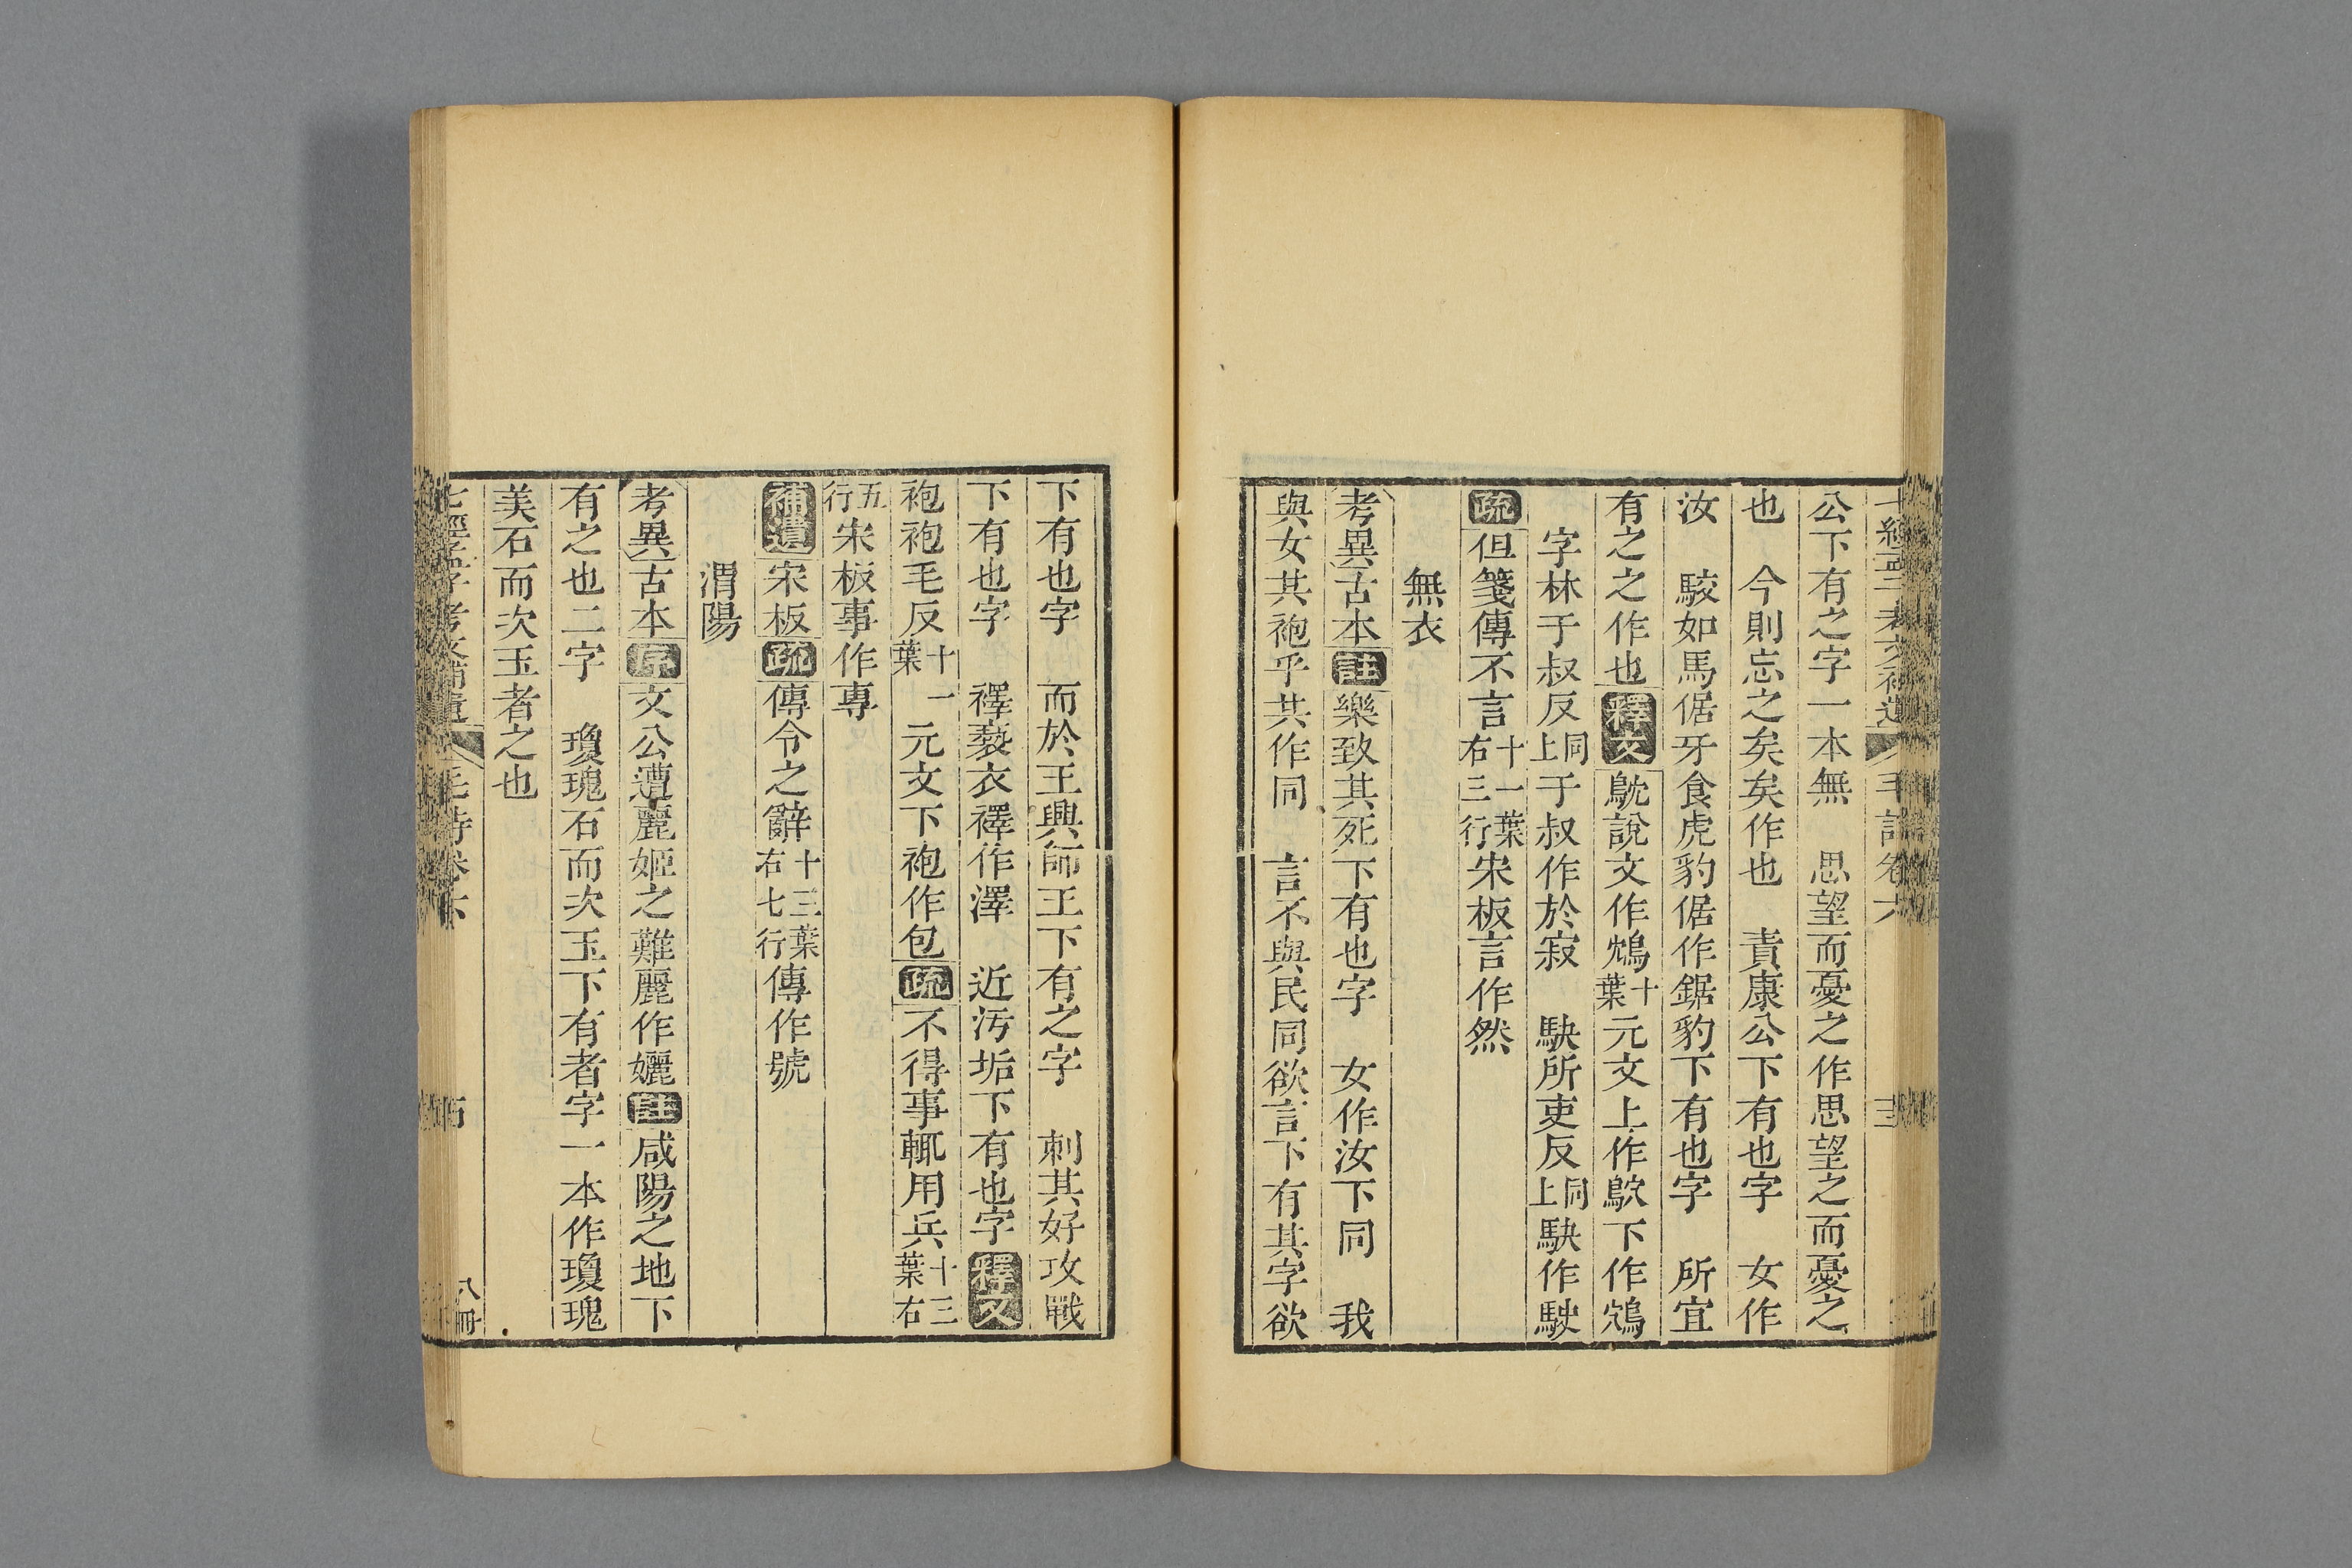 公下有之字一本無　思望而憂之作思望之而憂之
也　今則忘之矣矣作也　責康公下有也字　女作
汝　駮如馬倨牙食虎豹倨作鋸豹下有也字　所宜
有之之作也釋文鴥說文作鴆十葉元文上作鴥下作鴆
字林于叔反同上于叔作於寂　駃所吏反同上駃作駛
疏但箋傳不言十一葉右三行宋板言作然
無衣
考異古本註樂致其死下有也字　女作汝下同　我
與女共袍乎共作同　言不與民同欲言下有其字欲
下有也字　而於王興師王下有之字　刺其好攻戰
下有也字　襗褻衣襗作澤　近污垢下有也字釋文
袍袍毛反十一葉元文下袍作包疏不得事輒用兵十三葉右
五行宋板事作專
補遺宋板疏傳令之辭十三葉右七行傳作號
渭陽
考異古本序文公遭麗姬之難麗作孋註咸陽之地下
有之也二字　瓊瑰石而次玉下有者字一本作瓊瑰
美石而次玉者之也
八冊